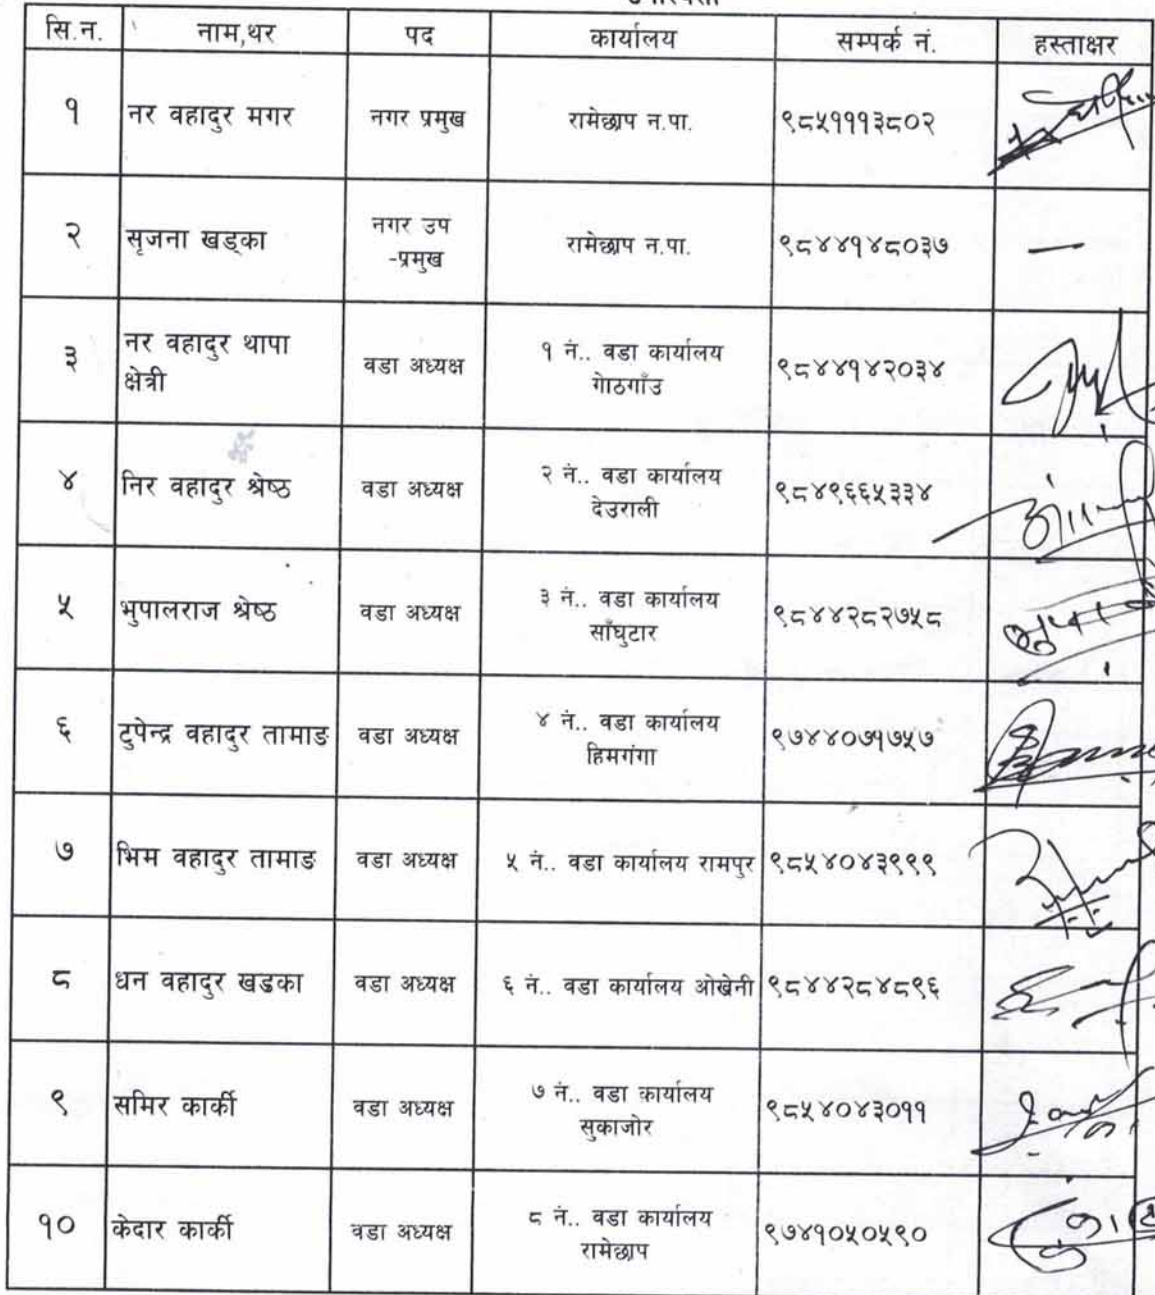 सि.न. नाम,थर पद कार्यालय सम्पर्क नं. हस्ताक्षर
१ नर वहादुर मगर नगर प्रमुख रामेछाप न.पा. ९८५१११३८०२
२ सृजना खड्का नगर उप
-प्रमुख रामेछाप न.पा. ९८४४१४८०३७ —
३ नर वहादुर थापा
क्षेत्री वडा अध्यक्ष १ नं.. वडा कार्यालय
गोठगाँउ ९८४४१४२०३४
४ निर वहादुर श्रेष्ठ वडा अध्यक्ष २ नं.. वडा कार्यालय
देउराली ९८४९६६५३३४
५ भुपालराज श्रेष्ठ वडा अध्यक्ष ३ नं.. वडा कार्यालय
साँघुटार ९८४४२८२७५८
६ टुपेन्द्र वहादुर तामाङ वडा अध्यक्ष ४ नं.. वडा कार्यालय
हिमगंगा ९७४४०७१७५७
७ भिम वहादुर तामाङ वडा अध्यक्ष ५ नं.. वडा कार्यालय रामपुर ९८५४०४३९९९
८ धन वहादुर खडका वडा अध्यक्ष ६ नं.. वडा कार्यालय ओखेनी ९८४४२८४८९६
९ समिर कार्की वडा अध्यक्ष ७ नं.. वडा कार्यालय
सुकाजोर ९८५४०४३०११
१० केदार कार्की वडा अध्यक्ष ८ नं.. वडा कार्यालय
रामेछाप ९७४१०५०५९०